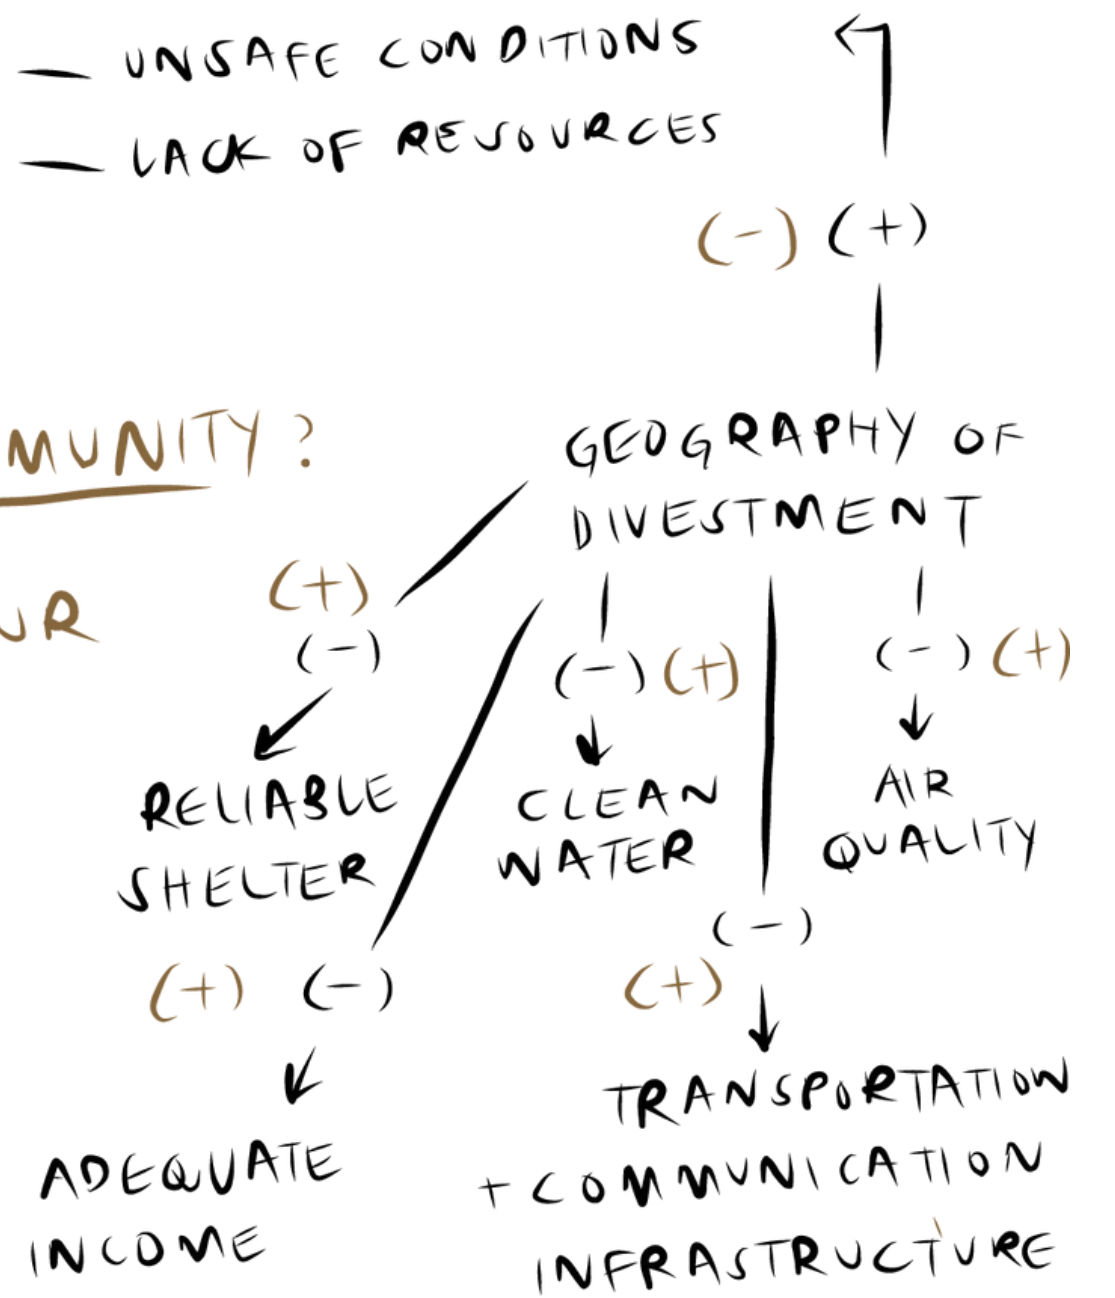 — UNSAFE CONDITIONS
— LACK OF RESOURCES
(-) (+)
MUNITY?
GEOGRAPHY OF
DIVESTMENT
UR
(+)
(-)
(-) (+)
(-) (+)
RELIABLE
SHELTER
CLEAN
WATER
AIR
QUALITY
(+) (-)
(-)
(+)
ADEQUATE
INCOME
TRANSPORTATION
+ COMMUNICATION
INFRASTRUCTURE